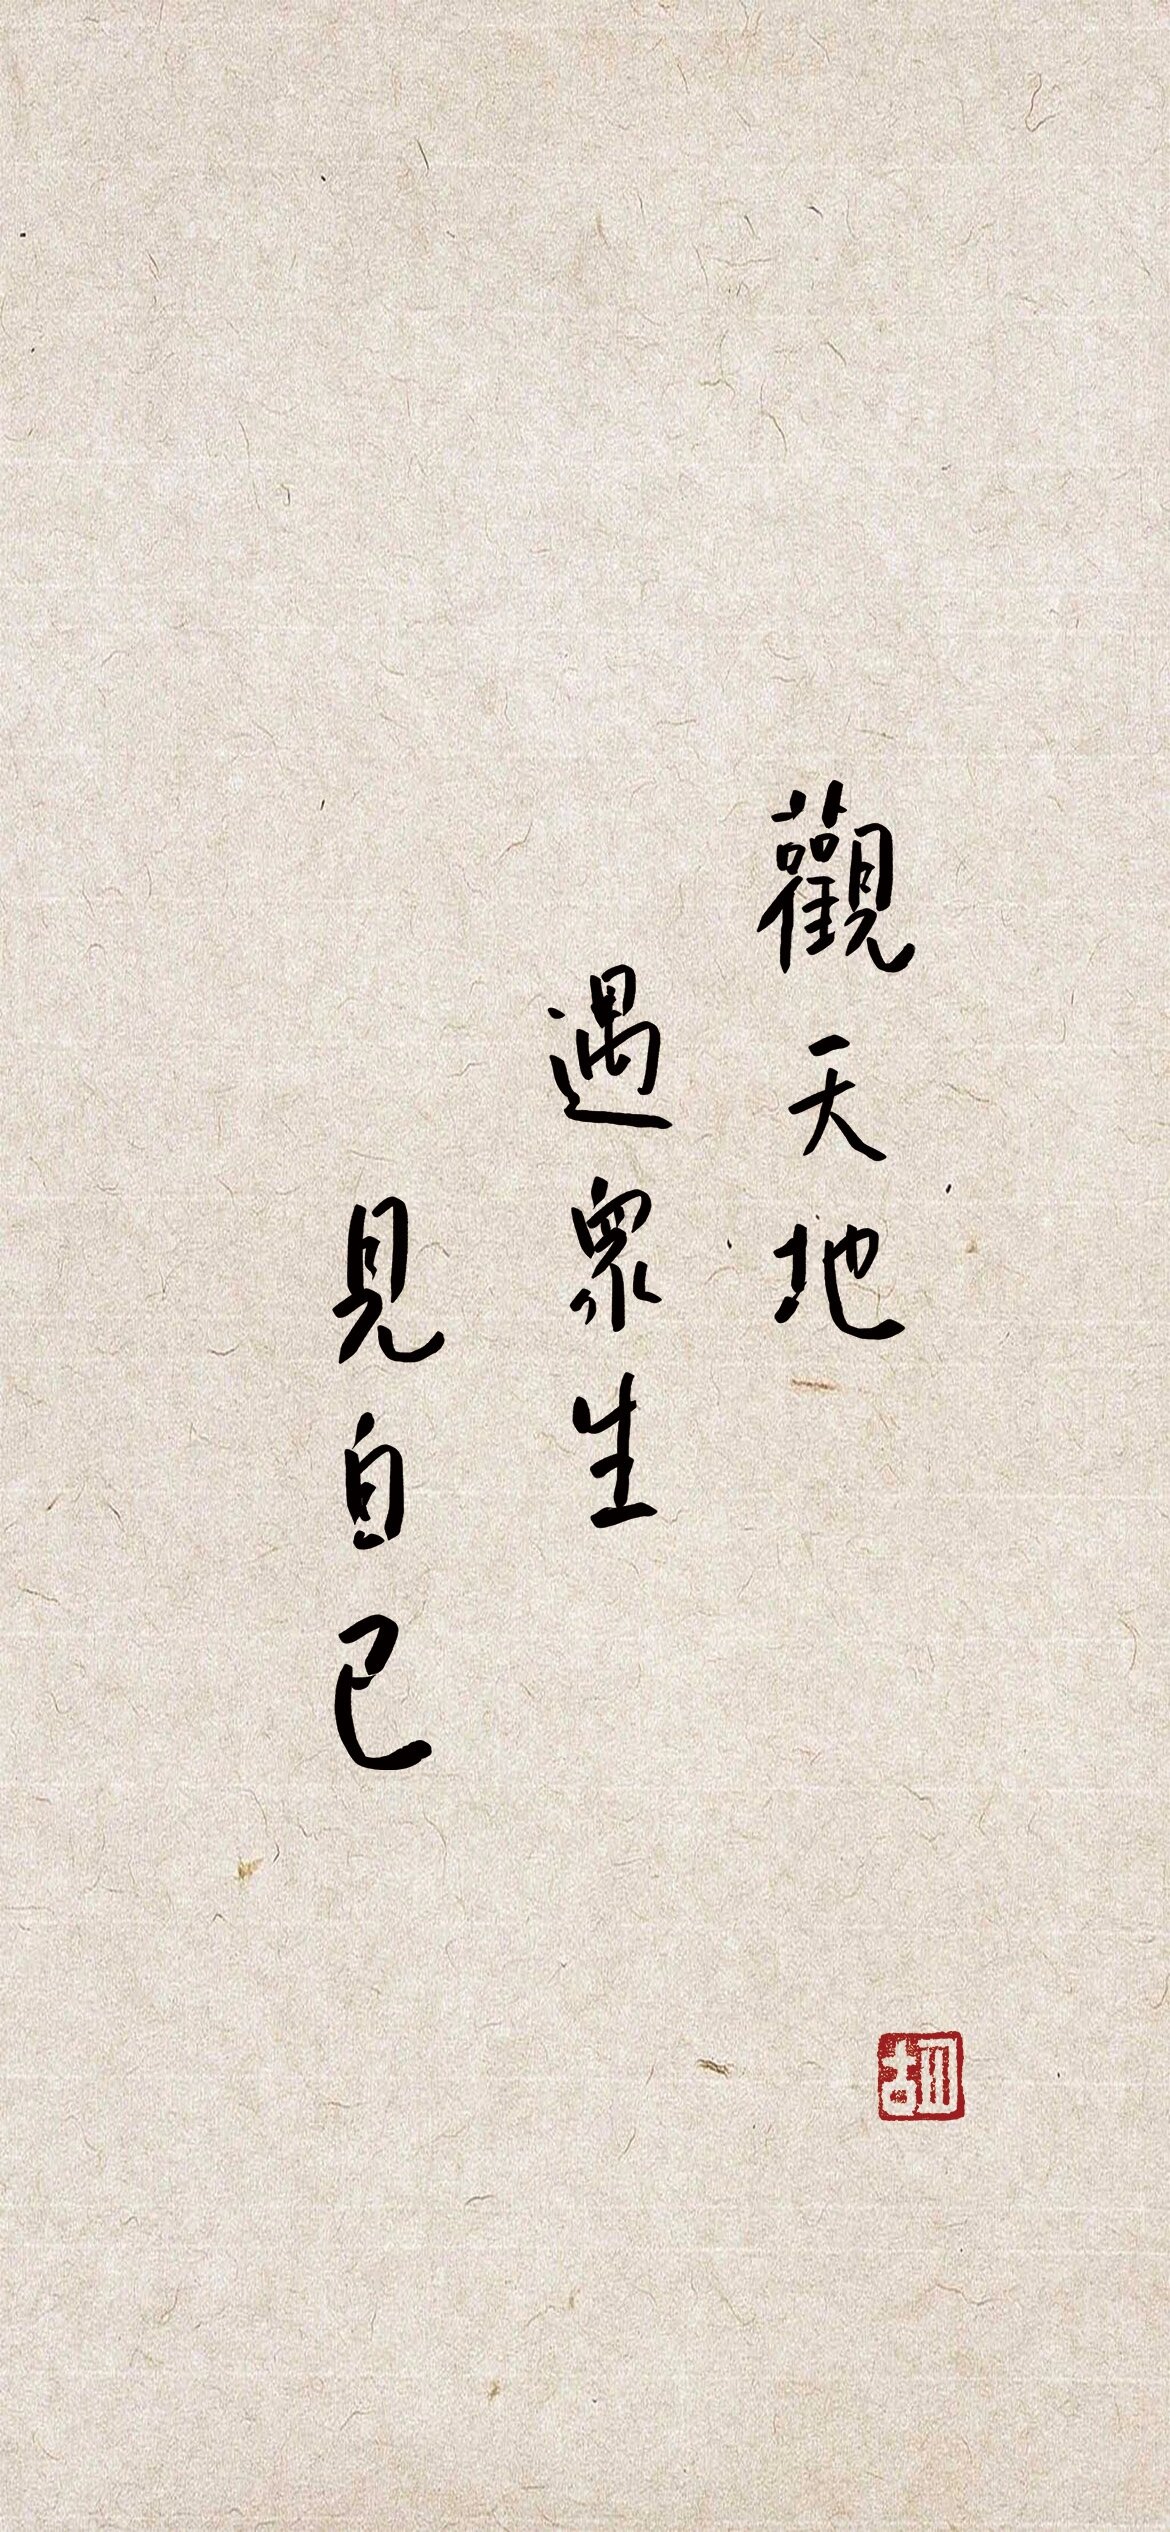 觀天地
遇眾生
見自己
胡